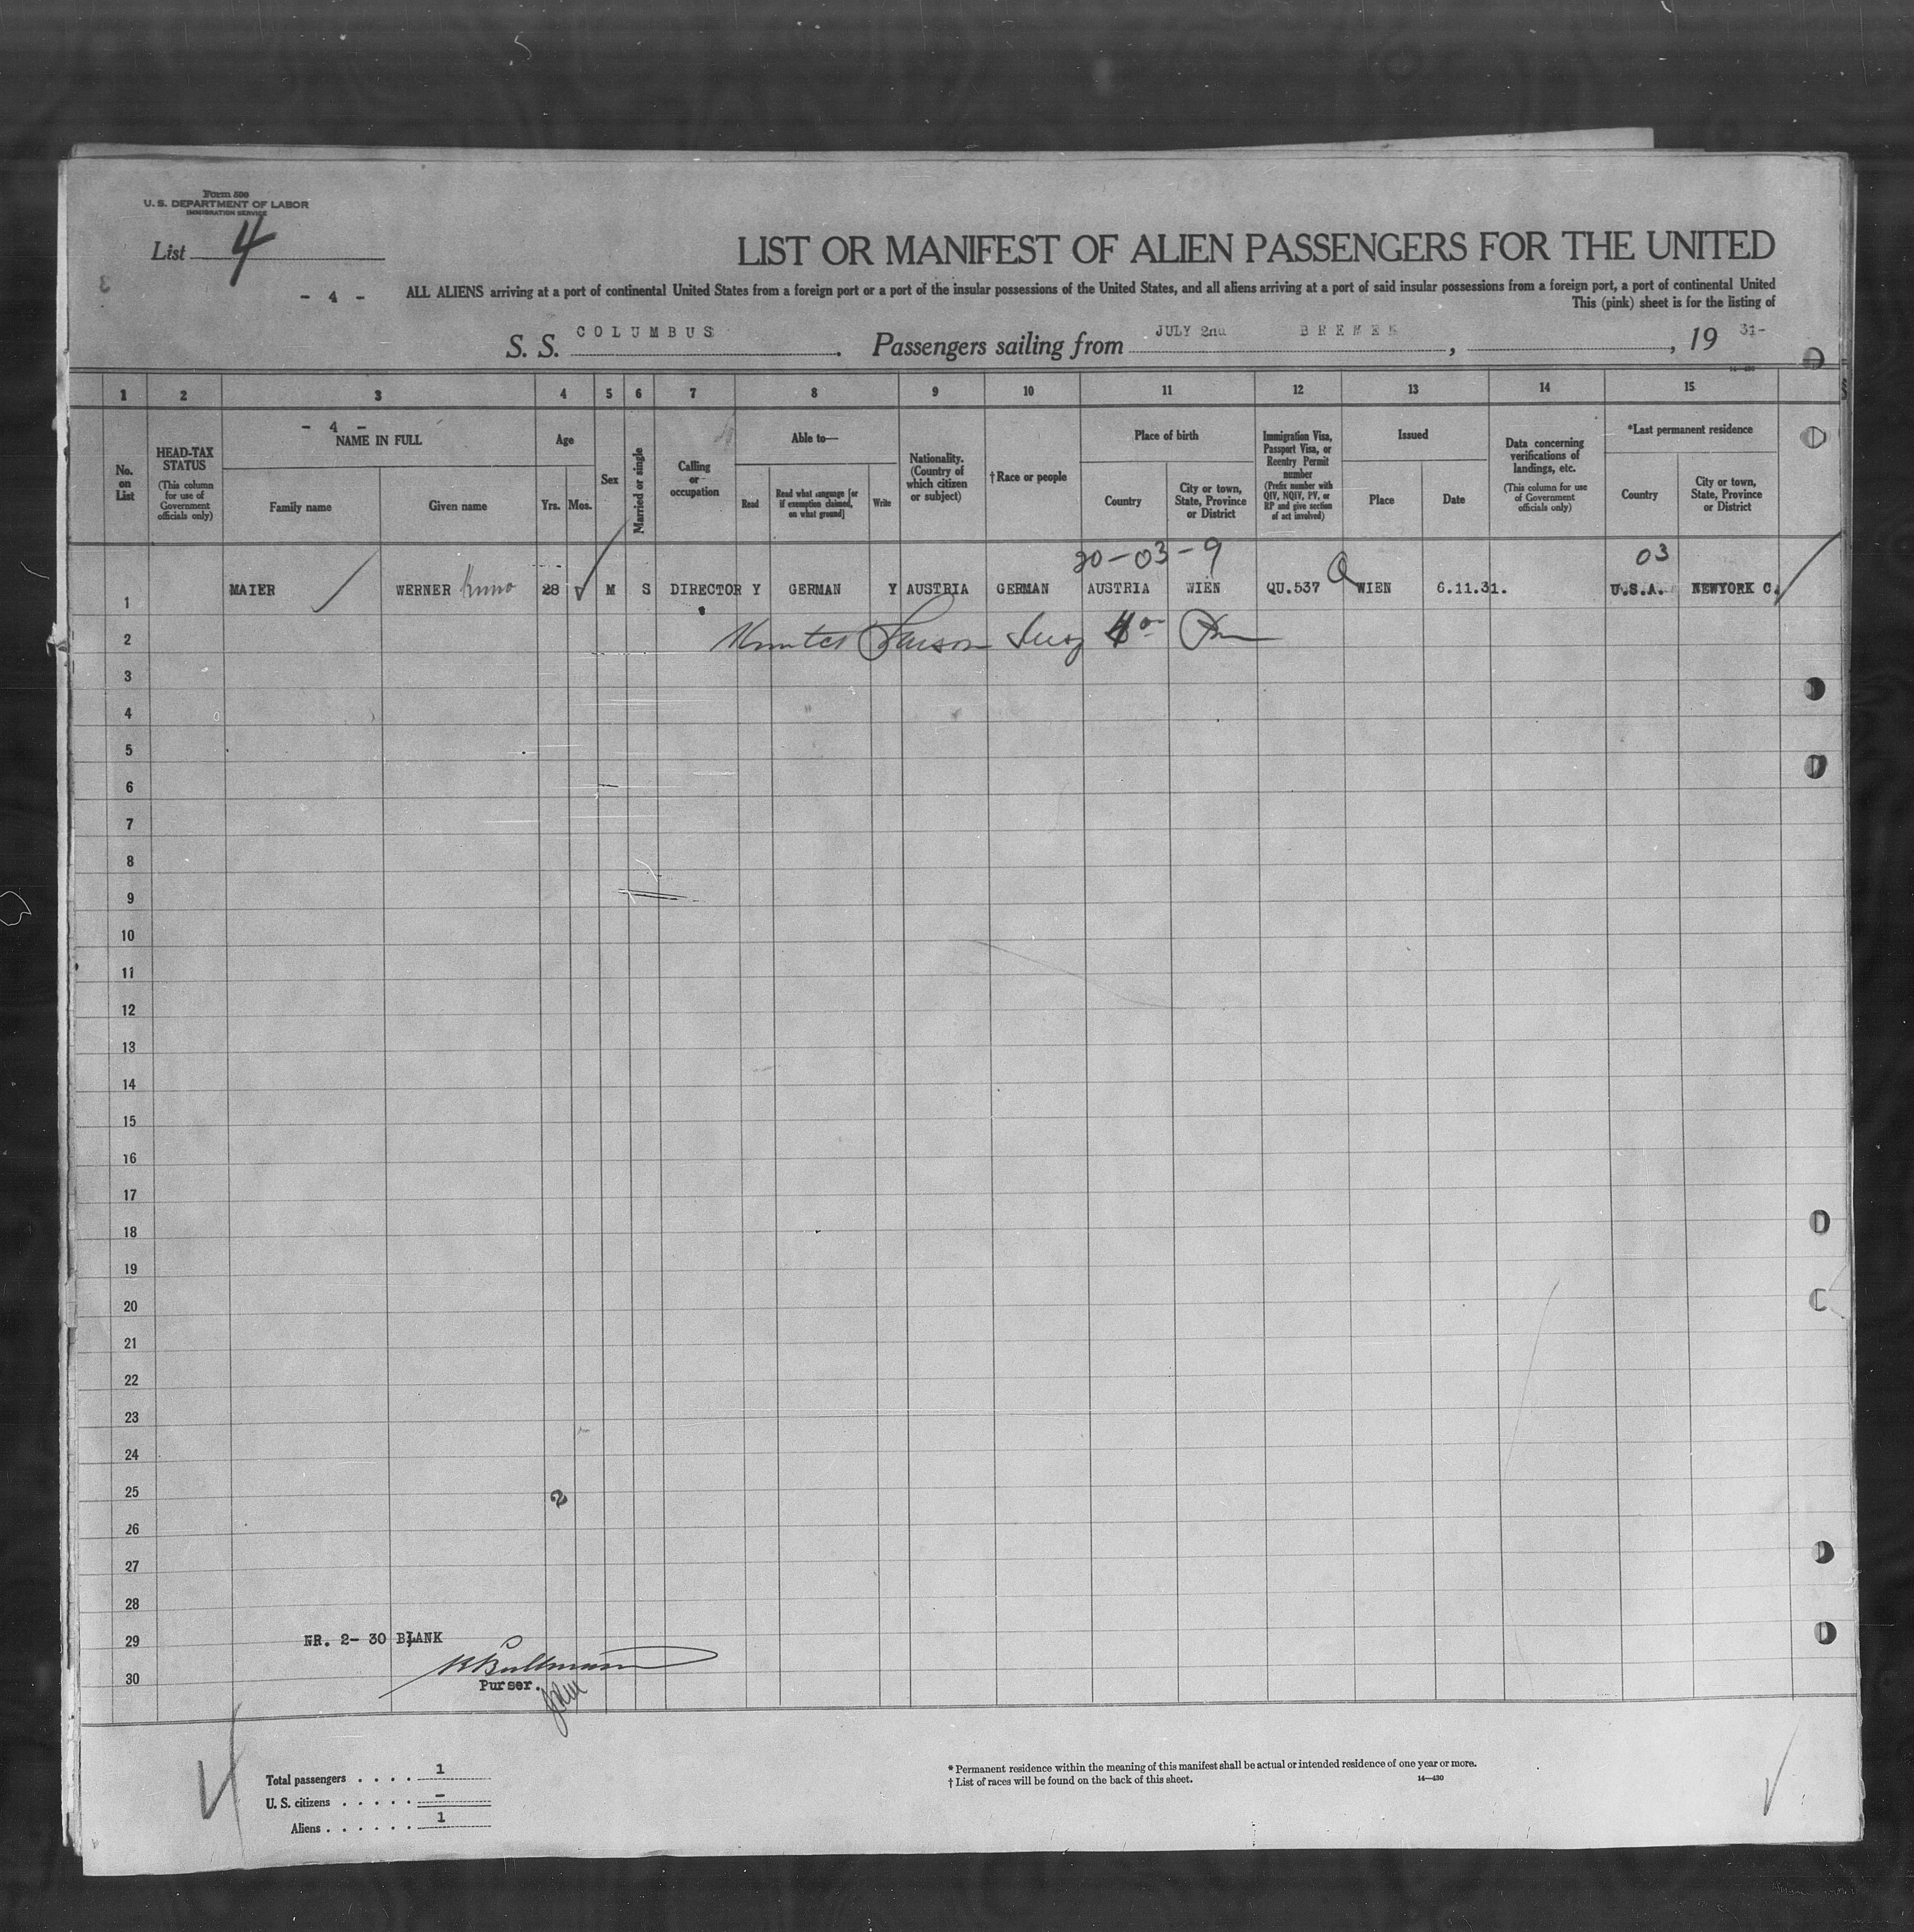 Form 500
U. S. DEPARTMENT OF LABOR
IMMIGRATION SERVICE
List 4
LIST OR MANIFEST OF ALIEN PASSENGERS FOR THE UNITED
- 4 -
ALL ALIENS arriving at a port of continental United States from a foreign port or a port of the insular possessions of the United States, and all aliens arriving at a port of said insular possessions from a foreign port, a port of continental United
This (pink) sheet is for the listing of
S. S. COLUMBUS. Passengers sailing from JULY 2nd BREMEN, , 19 31-
1 2 3 4 5 6 7 8 9 10 11 12 13 14 15
No. on List
HEAD-TAX STATUS (This column for use of Government officials only)
- 4 -
NAME IN FULL
Family name
Given name
Age
Yrs. Mos.
Sex
Married or single
Calling or occupation
Able to—
Read
Read what language [or if exemption claimed, on what ground]
Write
Nationality. (Country of which citizen or subject)
†Race or people
Place of birth
Country
City or town, State, Province or District
Immigration Visa, Passport Visa, or Reentry Permit number (Prefix number with QIV, NQIV, PV, or RP and give section of act involved)
Issued
Place
Date
Data concerning verifications of landings, etc. (This column for use of Government officials only)
*Last permanent residence
Country
City or town, State, Province or District
20-03-9
03
1 MAIER WERNER Kuno 28 M S DIRECTOR Y GERMAN Y AUSTRIA GERMAN AUSTRIA WIEN QU.537 Q WIEN 6.11.31. U.S.A. NEWYORK C.
2
3
4
5
6
7
8
9
10
11
12
13
14
15
16
17
18
19
20
21
22
23
24
25 2
26
27
28
29 NR. 2- 30 BLANK
30
Purser.
Total passengers . . . . 1
U. S. citizens . . . . . -
Aliens . . . . . . 1
* Permanent residence within the meaning of this manifest shall be actual or intended residence of one year or more.
† List of races will be found on the back of this sheet.
14—430